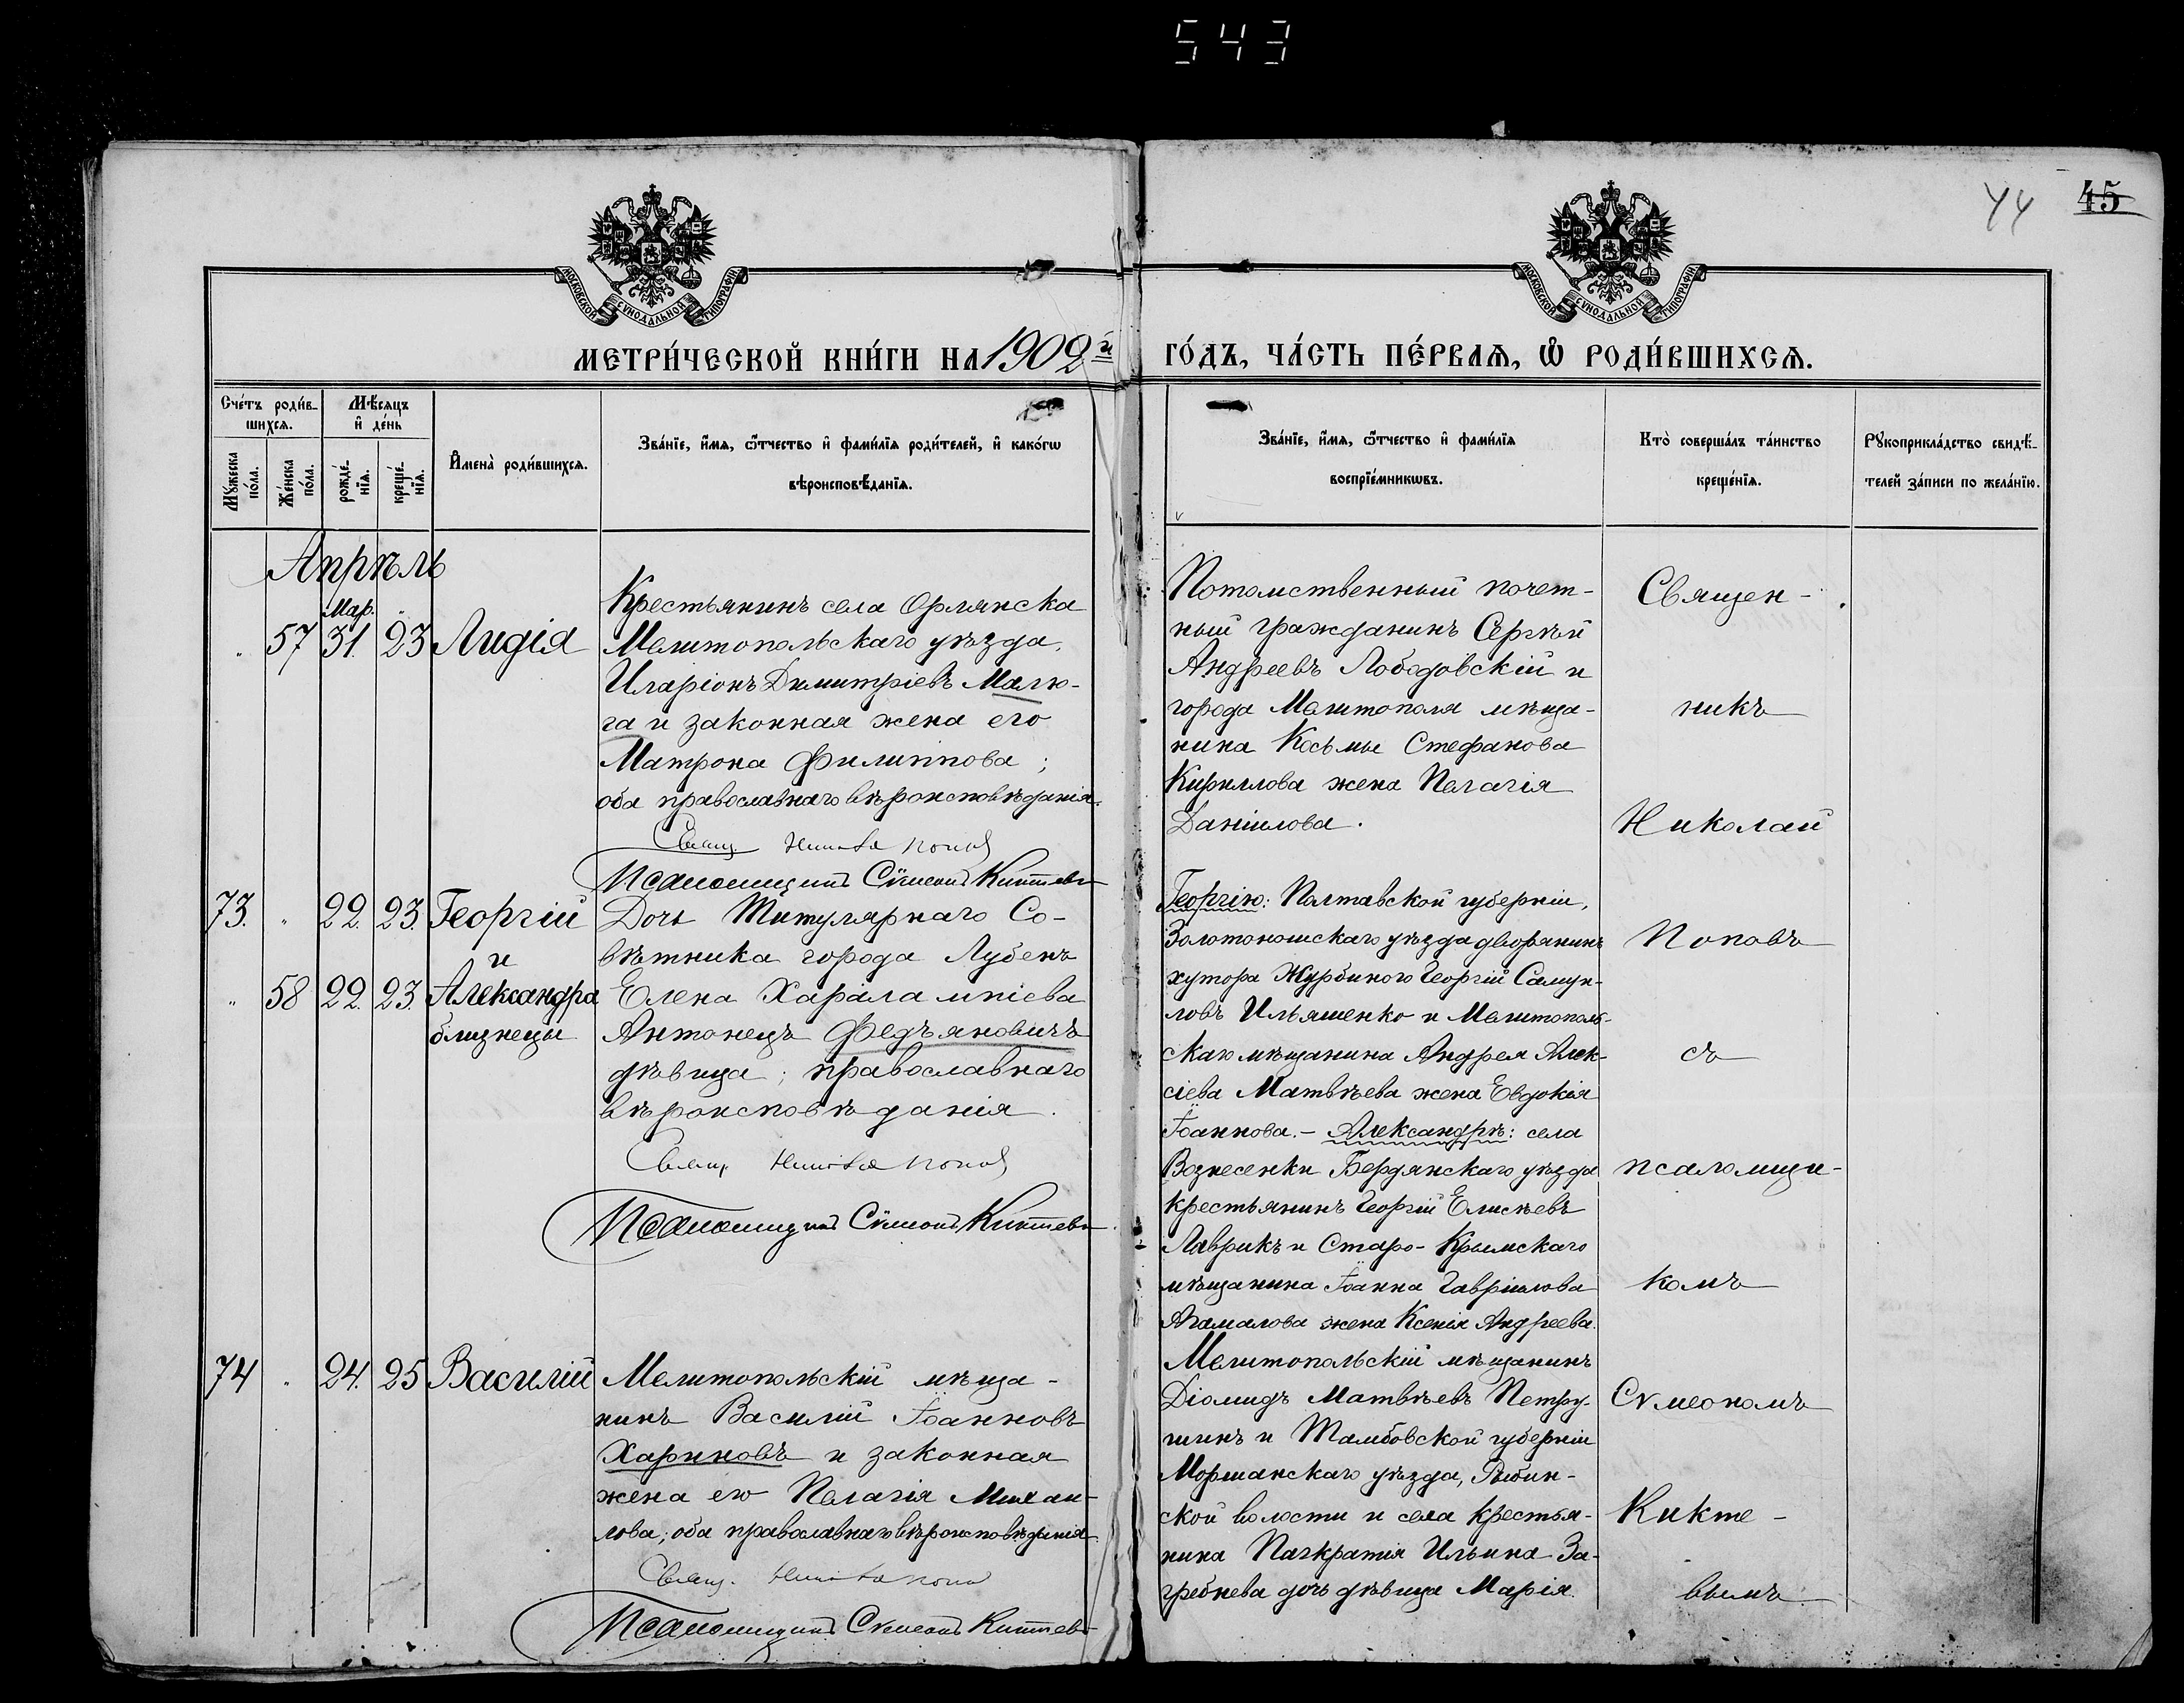 543
44
45
МОСКОВСКОЙ СѴНОДАЛЬНОЙ ТИПОГРАФІИ
МОСКОВСКОЙ СѴНОДАЛЬНОЙ ТИПОГРАФІИ
МЕТРИ́ЧЕСКОЙ КНИ́ГИ НА 1902й ГО́ДЪ, ЧА́СТЬ ПЕ́РВАѦ, Ѽ РОДИ́ВШИХСѦ.
Сче́тъ роди́в-
шихсѧ.
Мѣ́сѧцъ
и҆ де́нь
Мꙋ́жеска
по́ла.
Же́нска
по́ла.
рожде́-
нїѧ.
креще́-
нїѧ.
И҆мена̀ роди́вшихсѧ.
Зва́нїе, и҆́мѧ, ѻ҆́тчество и҆ фами́лїѧ роди́телей, и҆ како́гѡ
вѣроисповѣ́данїѧ.
Зва́нїе, и҆́мѧ, ѻ҆́тчество и҆ фами́лїѧ
воспрїе́мникѡвъ.
Кто̀ соверша́лъ та́инство
креще́нїѧ.
Рꙋкоприкла́дство свидѣ́-
телей за́писи по жела́нїю.
Апрѣль
Мар.
" 57 31. 23 Лидія
Крестьянинъ села Орлянска
Мелитопольскаго уѣзда,
Иларіонъ Димитріевъ Малю-
га и законная жена его
Матрона Филиппова;
оба православнаго вѣроисповѣданія.
Свящ. Николай Поповъ
Псаломщикъ Сѵмеонъ Киктевъ
Потомственный почет-
ный гражданинъ Сергѣй
Андреевъ Лободовскій и
города Мелитополя мѣща-
нина Косьмы Стефанова
Кириллова жена Пелагія
Даніилова.
Священ-
никъ
Николай
73. " 22. 23. Георгій
и
" 58 22. 23. Александра
близнецы
Дочь Титулярнаго Со-
вѣтника города Лубенъ
Елена Харалампіева
Антонецъ Федъяновичъ
дѣвица; православнаго
вѣроисповѣданія.
Свящ. Николай Поповъ
Псаломщикъ Сѵмеонъ Киктевъ
Георгію: Полтавской губерніи,
Золотоношскаго уѣзда дворянинъ
хутора Журбиного Георгій Самуи-
ловъ Ильяшенко и Мелитополь-
скаго мѣщанина Андрея Алек-
сіева Матвѣева жена Евдокія
Іоаннова. - Александрѣ: села
Вознесенки Бердянскаго уѣзда
крестьянинъ Георгій Елисѣевъ
Лаврикъ и Старо-Крымскаго
мѣщанина Іоанна Гавріилова
Агамалова жена Ксенія Андреева.
Поповъ
съ
псаломщи-
комъ
74 " 24. 25 Василій
Мелитопольскій мѣща-
нинъ Василій Іоанновъ
Хариновъ и законная
жена его Пелагія Михаи-
лова; оба православнаго вѣроисповѣданія.
Свящ. Николай Поповъ
Псаломщикъ Сѵмеонъ Киктевъ
Мелитопольскій мѣщанинъ
Діомидъ Матвѣевъ Петру-
шинъ и Тамбовской губерніи
Моршанскаго уѣзда, Рыбин-
ской волости и села крестья-
нина Панкратія Ильина За-
гребнева дочь дѣвица Марія.
Сѵмеономъ
Кикте-
вымъ